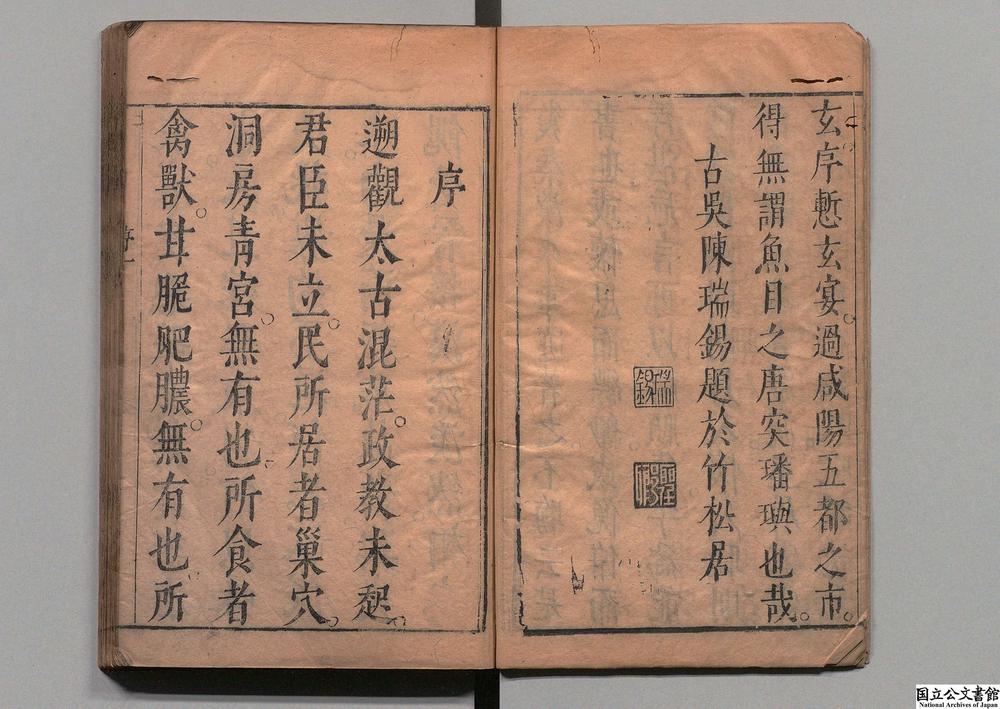 玄序慙玄宴過咸陽五都之市
得無謂魚目之唐突璠璵也哉
古吳陳瑞錫題於竹松居
序
遡觀太古混茫政教未起
君臣未立民所居者巢穴
洞房青宮無有也所食者
禽獸甘脆肥膿無有也所
国立公文書館
National Archives of Japan